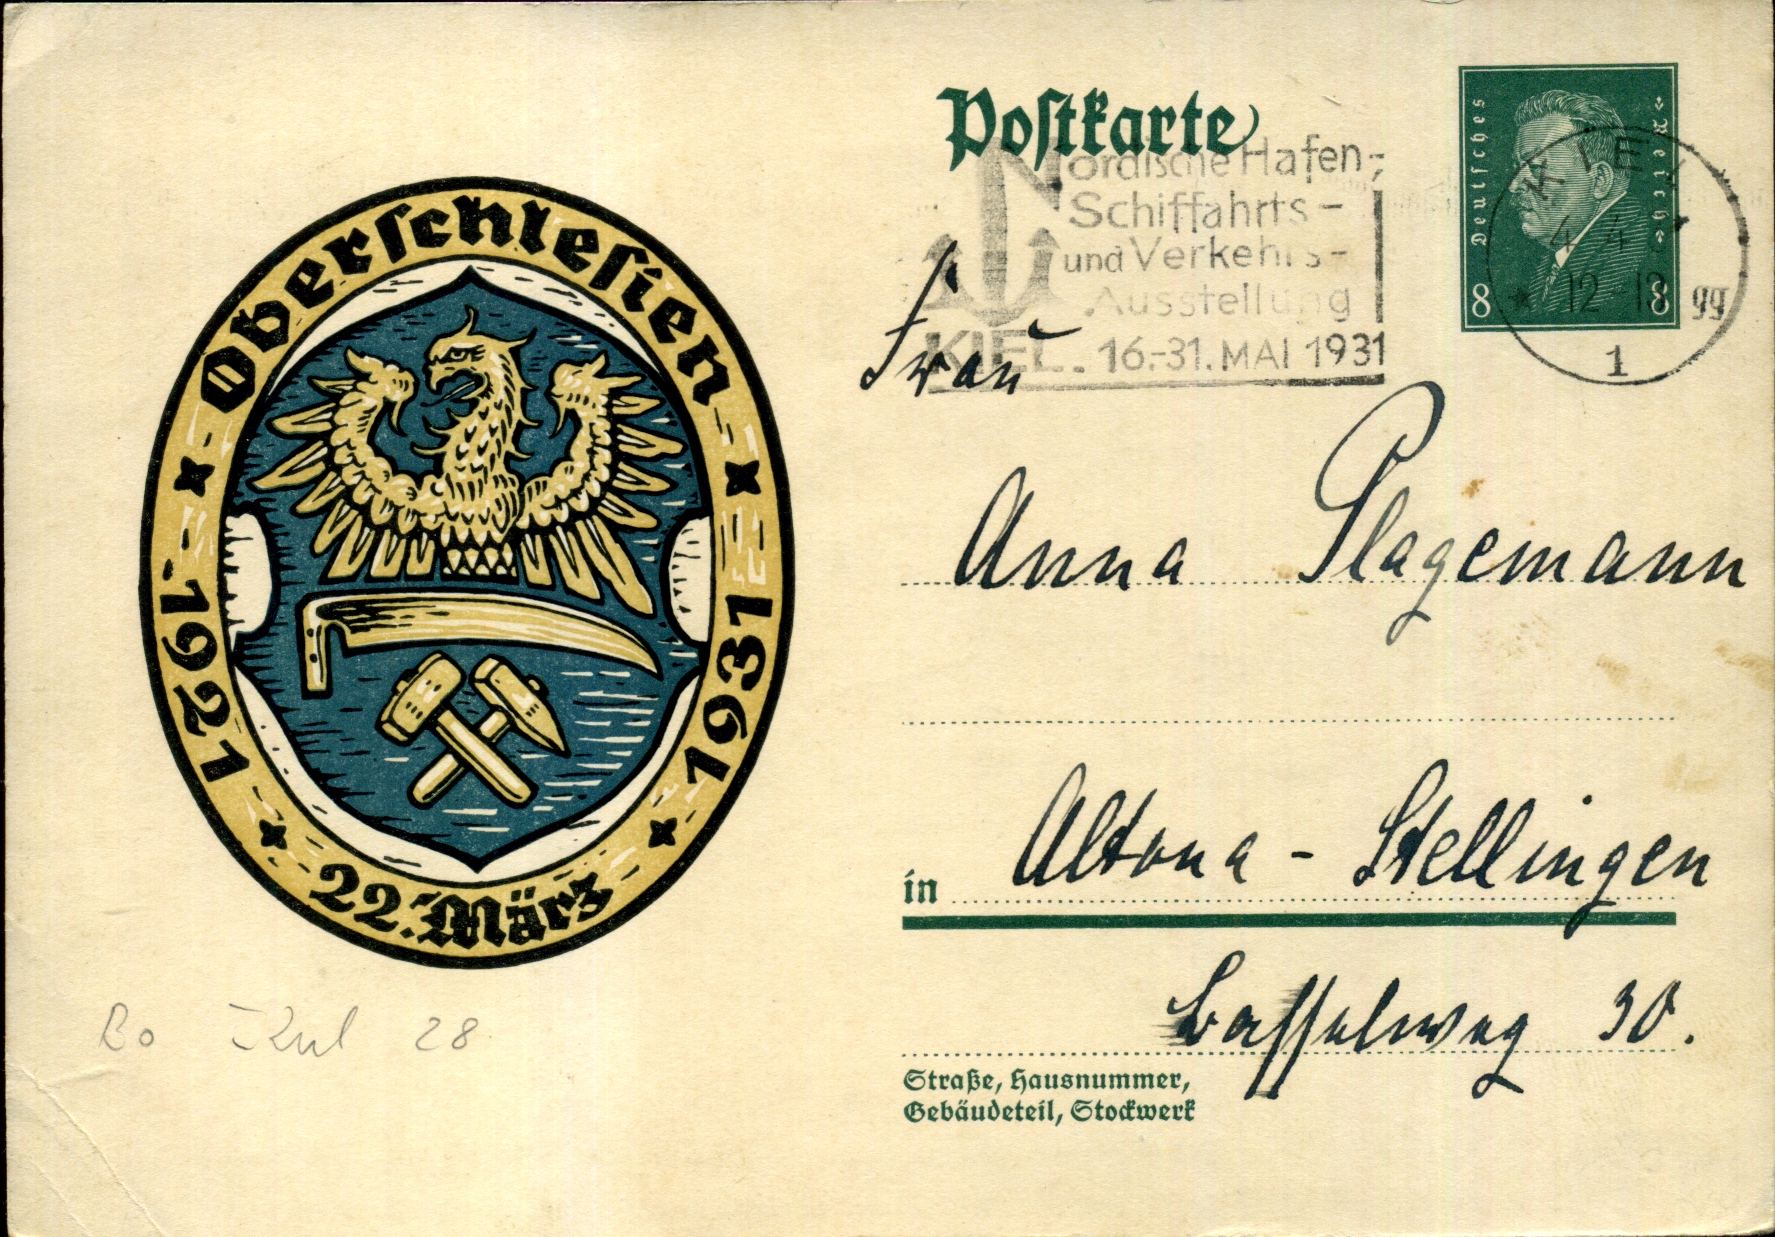 Oberschlesien
1921
1931
22. März
Postkarte
Deutsches
Reich
8
8
KIEL
4 4
12-18
1
Nordische Hafen-,
Schiffahrts-
und Verkehrs-
Ausstellung
KIEL. 16.-31. MAI 1931
Frau
Anna Plagemann
in Altona - Stellingen
30.
Straße, Hausnummer,
Gebäudeteil, Stockwerk
28